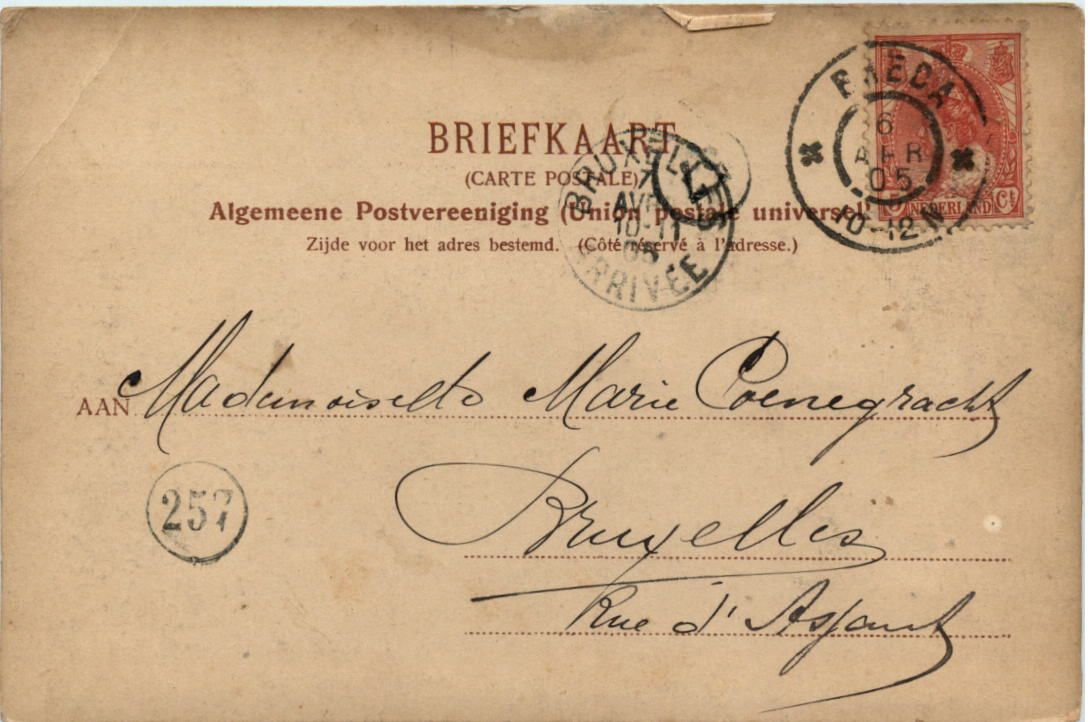 BRIEFKAART
(CARTE POSTALE)
Algemeene Postvereeniging (Union postale universel
Zijde voor het adres bestemd. (Côté réservé à l'adresse.)
BREDA
6
APR
05
10-12 N
5 NEDERLAND Ct
BRUXELLES
7
AVR
10-11
05
ARRIVÉE
AAN Mademoiselle Marie Coenegracht
257
Bruxelles
Rue d'